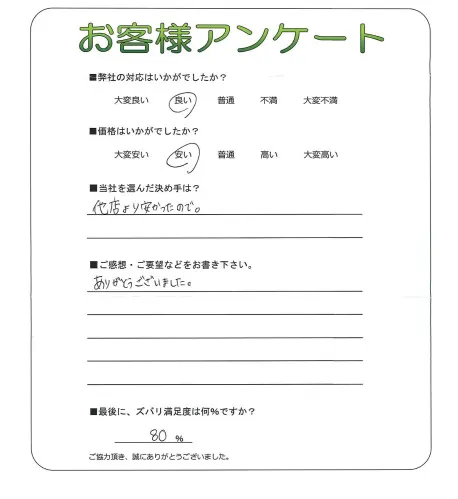 お客様アンケート
■弊社の対応はいかがでしたか？
大変良い 良い 普通 不満 大変不満
■価格はいかがでしたか？
大変安い 安い 普通 高い 大変高い
■当社を選んだ決め手は？
他店より安かったので。
■ご感想・ご要望などをお書き下さい。
ありがとうございました。
■最後に、ズバリ満足度は何%ですか？
80 %
ご協力頂き、誠にありがとうございました。